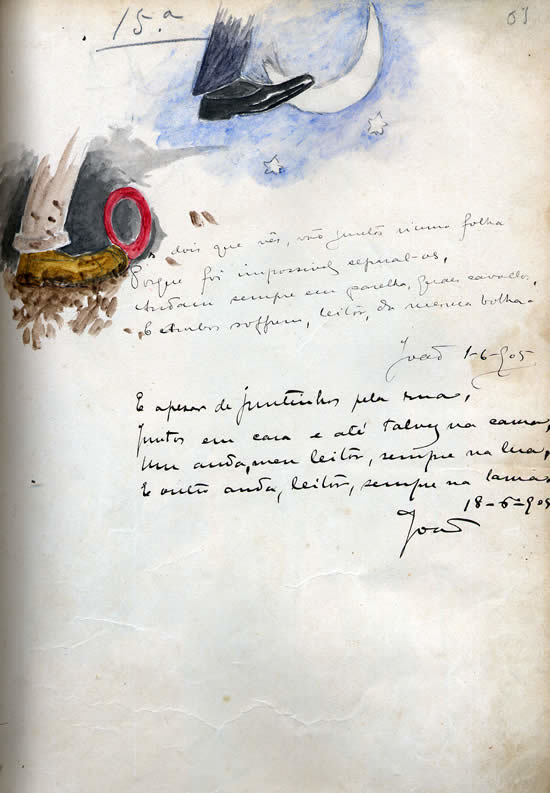 15.ª
dois que vês, vão juntos n'uma folha
Porque foi impossivel separal-os,
Andam sempre em parelha, quaes cavallos,
E ambos soffrem, leitor, da mesma bolha.
João 1-6-905
E apesar de juntinhos pela rua,
Juntos em casa e até talvez na cama,
Um anda, meu leitor, sempre na lua,
E outro anda, leitor, sempre na lama.
18-6-905
João